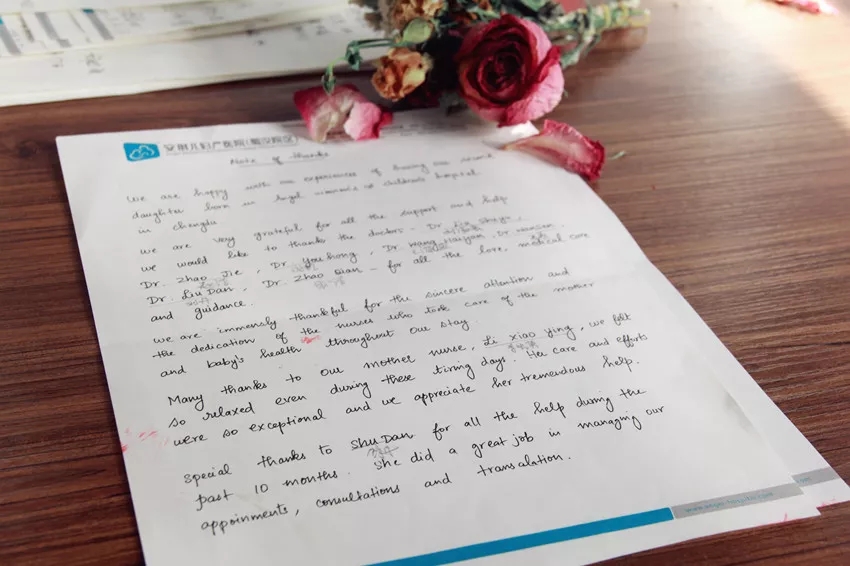 安琪儿妇产医院
Note of thanks
We are happy with our experience of having our second
daughter born in Angel women's & children's hospital
in chengdu.
We are very grateful for all the support and help
we would like to thank the doctors - Dr.
Dr. Zhao Jie, Dr. You hong, Dr. Wang Haiyan, Dr.
Dr. Liu Dan, Dr. Zhao Qian - for all the love, medical care
and guidance.
we are immensly thankful for the sincere attention and
the dedication of the nurses who took care of the mother
and baby's health throughout our stay.
Many thanks to our mother nurse, Li xiao ying, we felt
so relaxed even during these tiring days. Her care and efforts
were so exceptional and we appreciate her tremendous help.
special thanks to Shu Dan for all the help during the
past 10 months. She did a great job in managing our
appoinments, consultations and transalation.